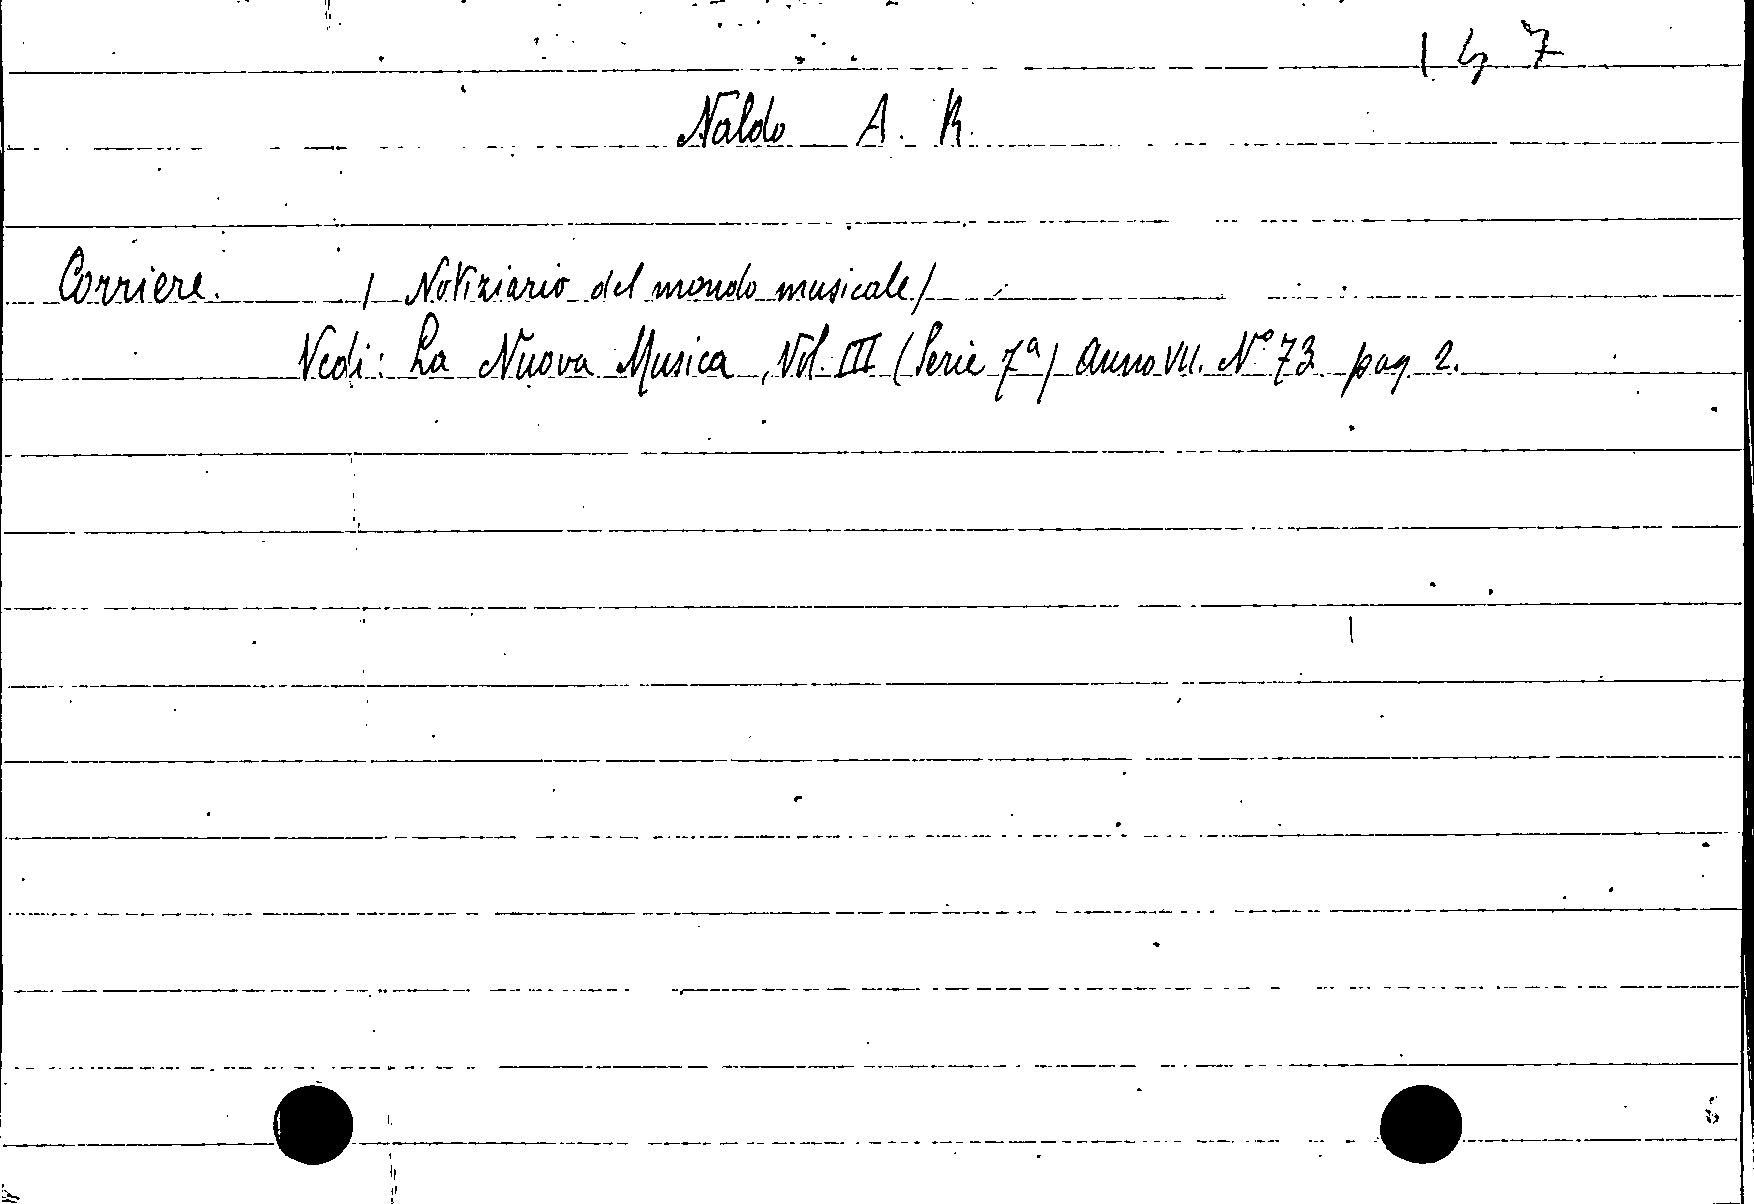 147
Naldo A. R.
Corriere. / Notiziario del mondo musicale /
Vedi: La Nuova Musica, Vol. III (Serie 7ª) anno VII. N° 73 pag. 2.